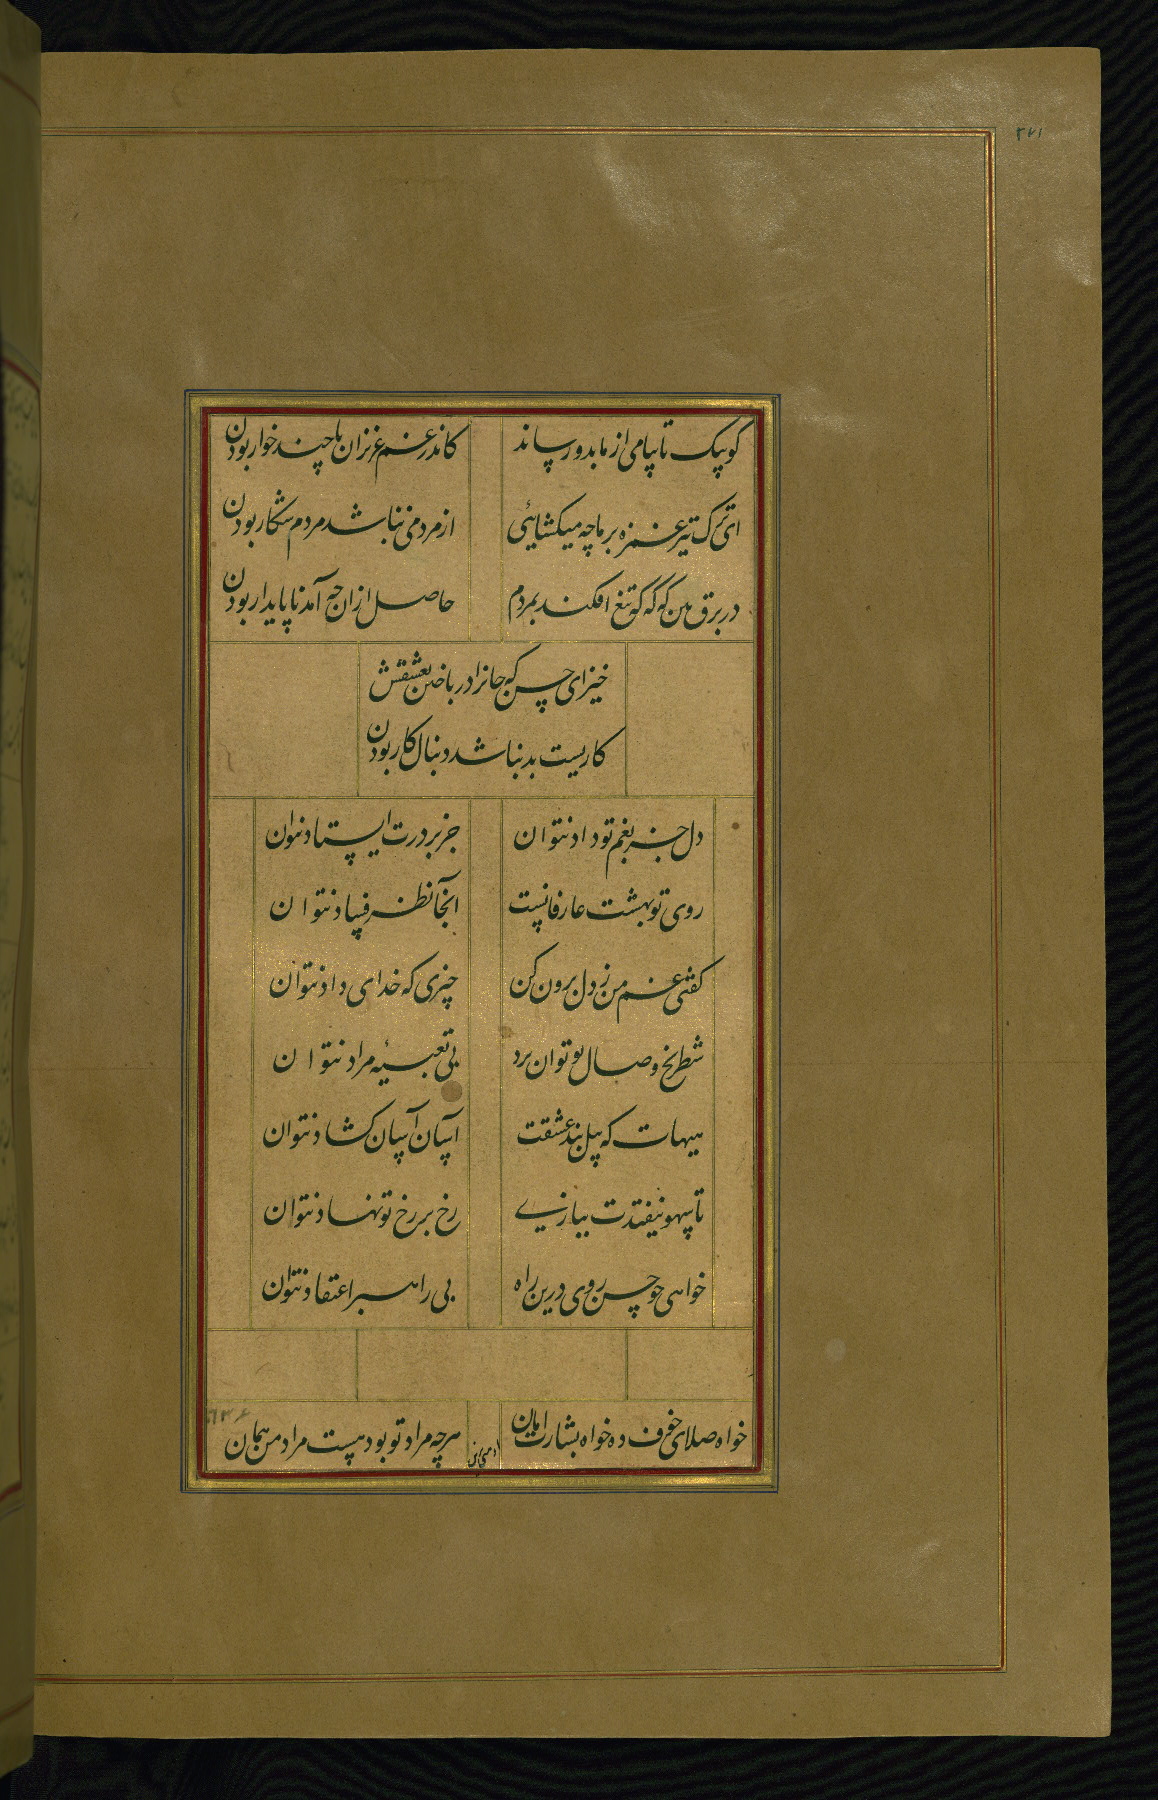 ۲۷۱
کو پیک تا پیامی از ما بدو رساند
کاندر غم عزیزان تا چند خوار بودن
ای ترک تیر غمزه بر ما چه میکشایئی
از مردمی نباشد مردم شکار بودن
در برق بین که گه گه کو تیغ افکند بمردم
حاصل ازان چه آمد ناپایدار بودن
خیز ای حسن که جانرا در باختن بعشقش
کاریست بد نباشد دنبال کار بودن
دل جز بغم تو داد نتوان
جز بر درت ایستاد نتوان
روی تو بهشت عارفانست
آنجا نظر فساد نتوان
کفتی غم من ز دل برون کن
چیزی که خدای داد نتوان
شطرنج وصال تو توان برد
بی تعبیئه مراد نتوان
هیهات که پیل بند عشقت
آسان آسان کشاد نتوان
تا سهو نیفتدت ببازی
رخ بر رخ تو نهاد نتوان
خواهی چو حسن روی درین راه
بی راهبر اعتقاد نتوان
خواه صلای خوف ده خواه بشارت امان
هرچه مراد تو بود هست مراد من همان